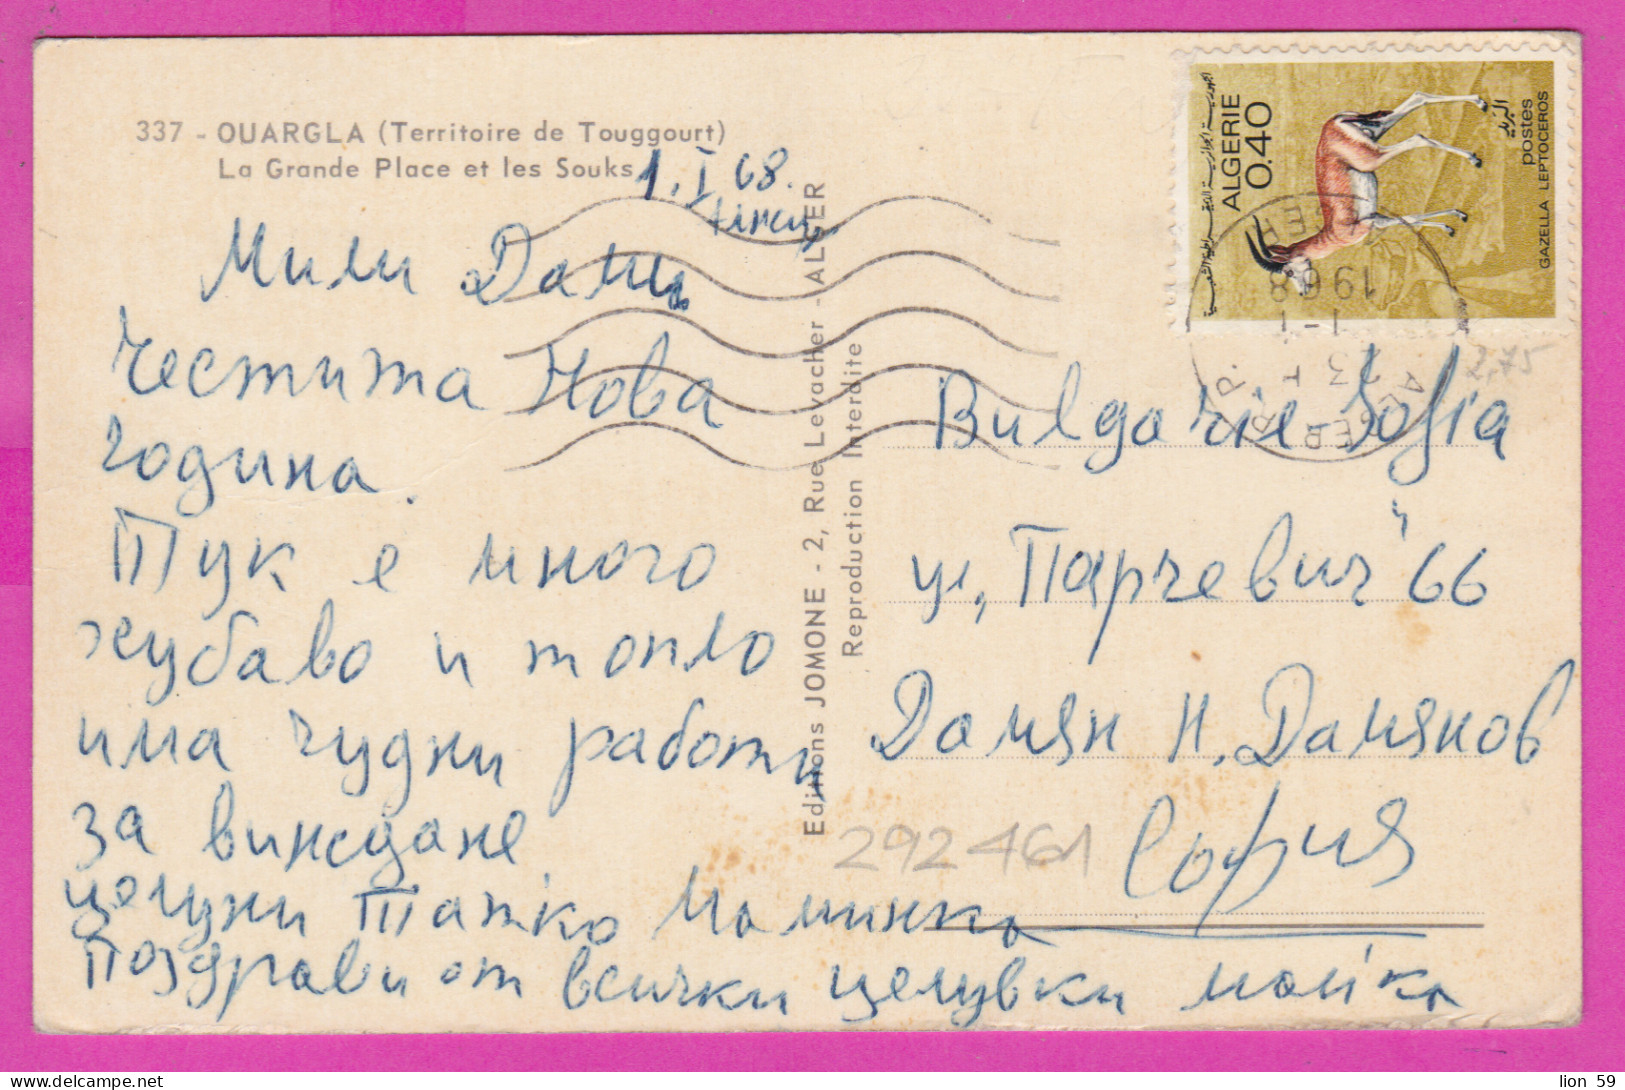 337 - OUARGLA (Territoire de Touggourt)
La Grande Place et les Souks
1.I 68.
Алжир
Мили Дами
Честита Нова
Година.
Тук е много
хубаво и топло
има чудни работи
за виждане
целуни Татко Маминка
Поздрави от всички целувки майка
Editions JOMONE - 2, Rue Levacher - ALGER
Reproduction Interdite
ALGERIE
0.40
postes
البريد
GAZELLA LEPTOCEROS
1968
2,75
Bulgarie Sofia
ул, "Парчевич" 66
Дамян Н. Дамянов
София
292461
lion 59